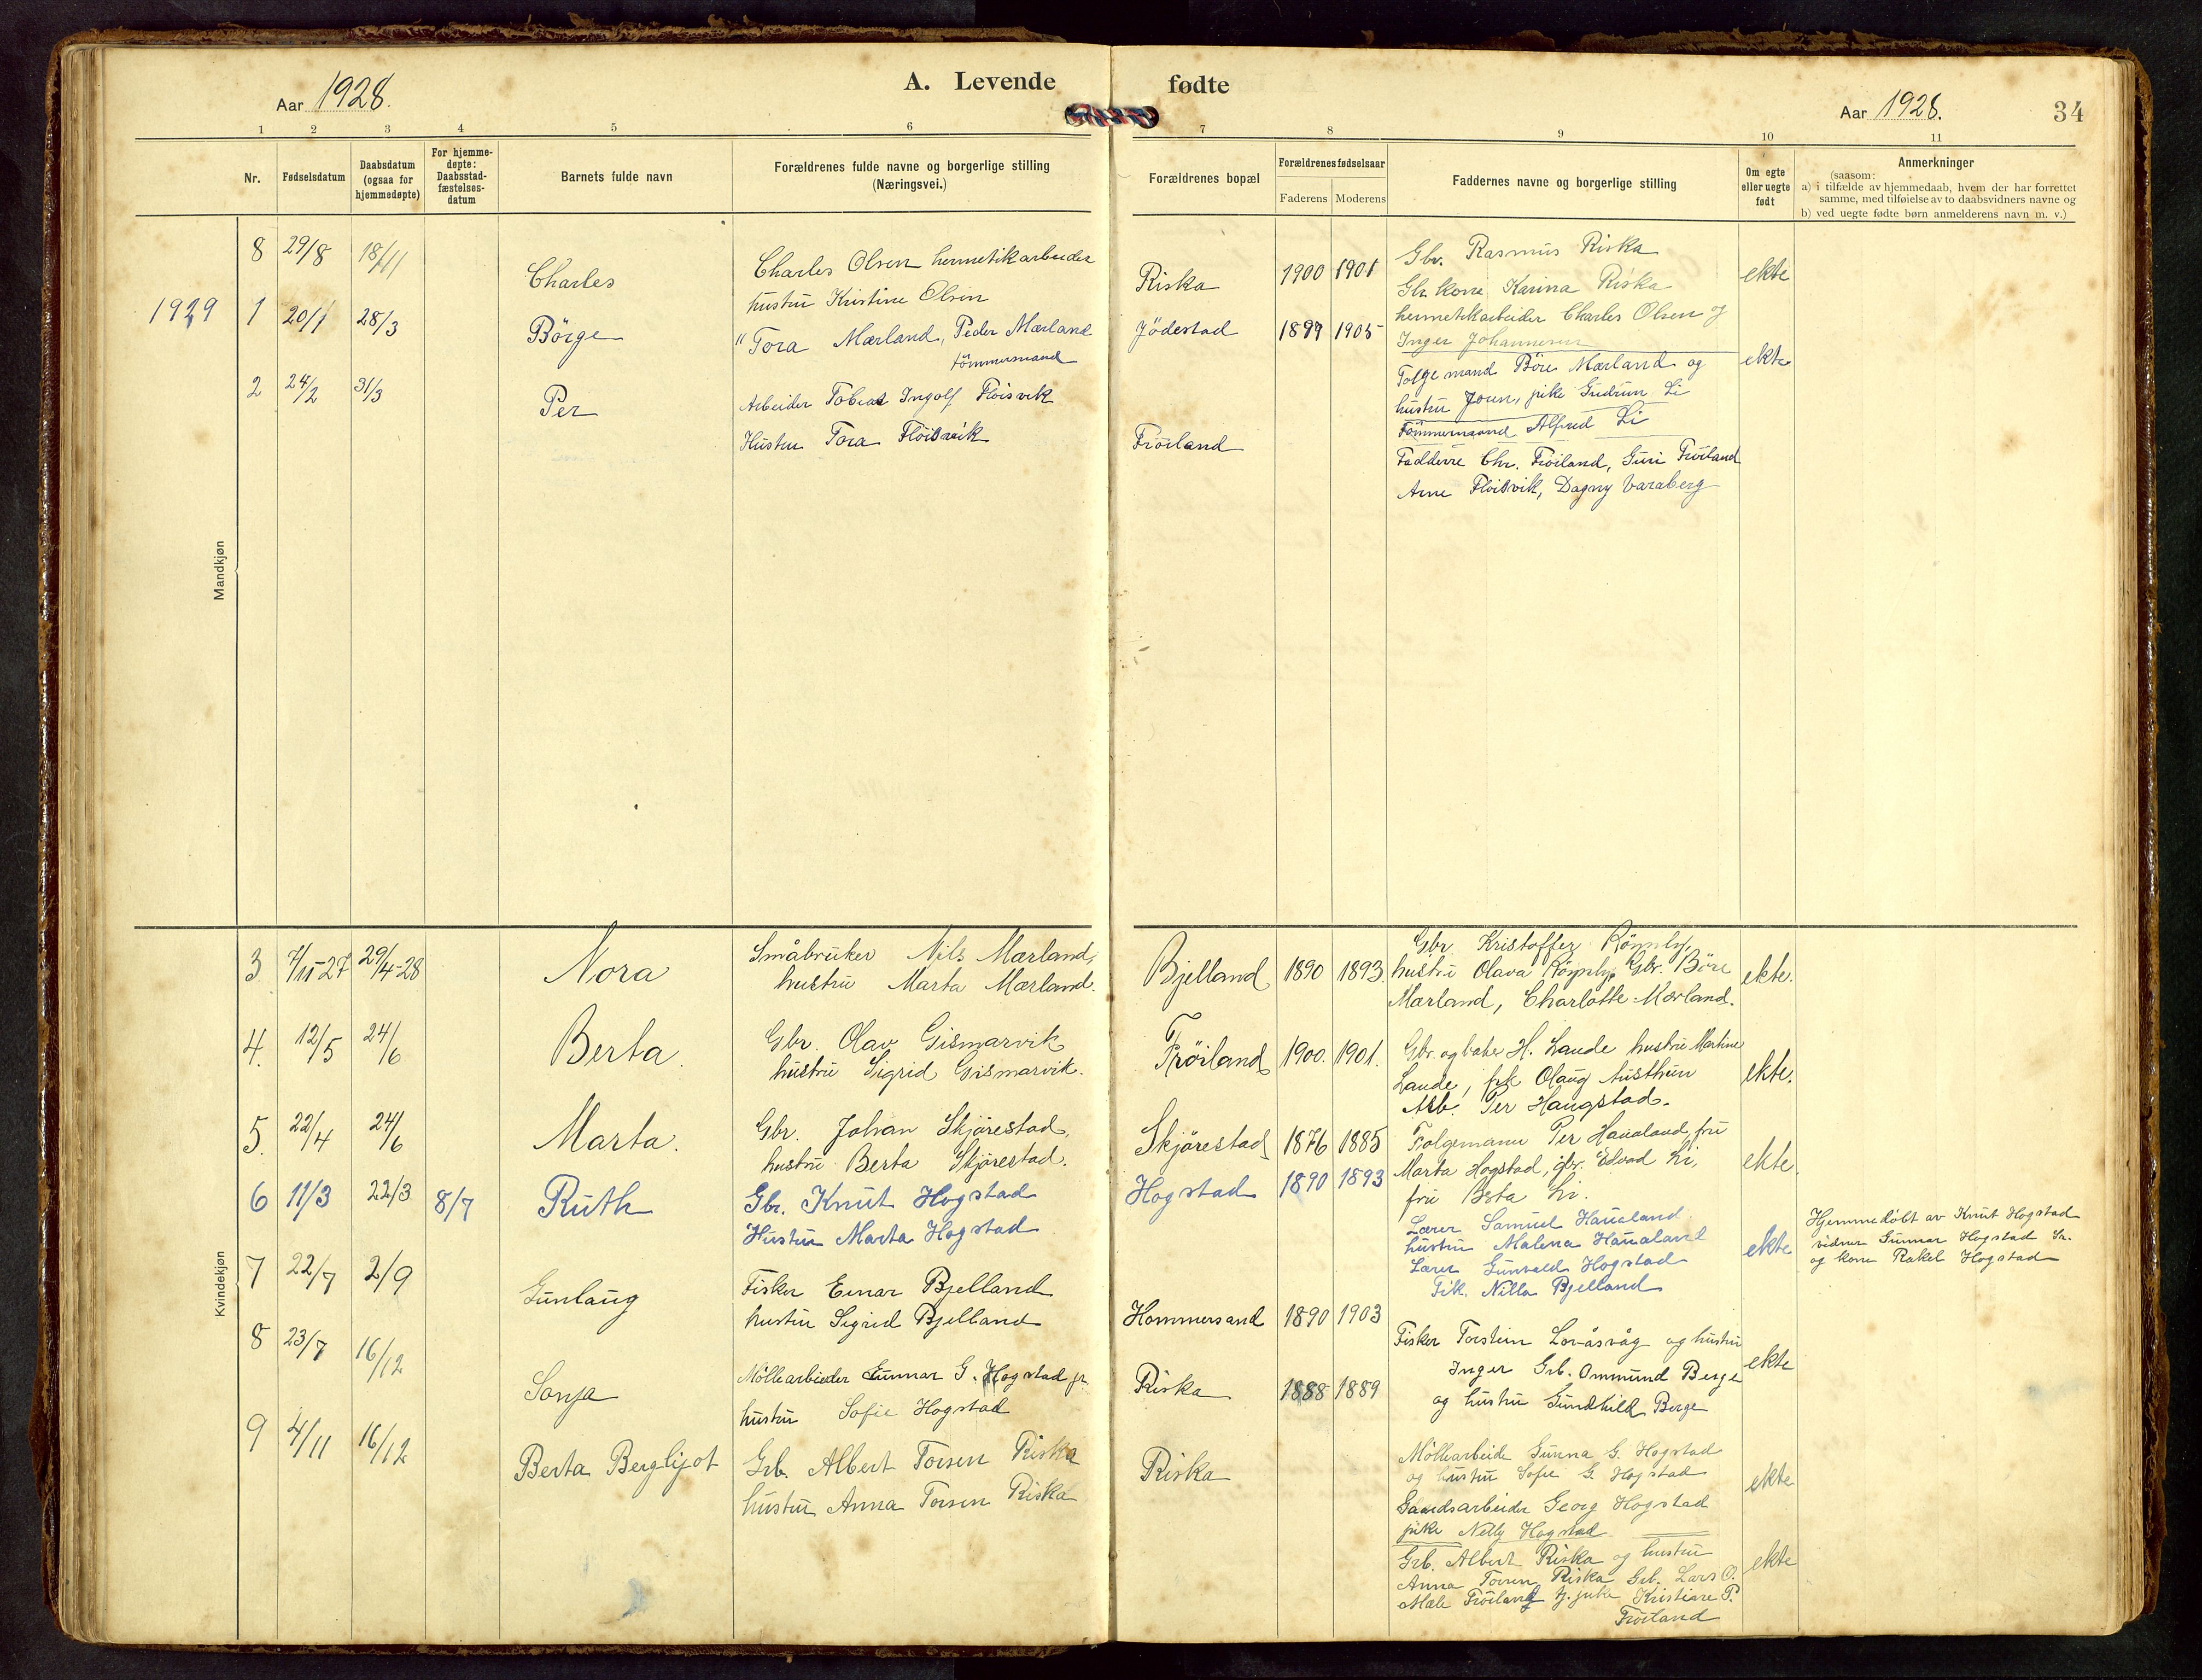 Aar 1928.
A. Levende fødte
Aar 1928.
34
1 2 3 4 5 6 7 8 9 10 11
Nr.
Fødselsdatum
Daabsdatum
(ogsaa for
hjemmedøpte)
For hjemme-
døpte:
Daabsstad-
fæstelses-
datum
Barnets fulde navn
Forældrenes fulde navne og borgerlige stilling
(Næringsvei.)
Forældrenes bopæl
Forældrenes fødselsaar
Faderens Moderens
Faddernes navne og borgerlige stilling
Om egte
eller uegte
født
Anmerkninger
(saasom:
a) i tilfælde av hjemmedaab, hvem der har forrettet
samme, med tilføielse av to daabsvidners navne og
b) ved uegte fødte børn anmelderens navn m. v.)
Mandkjøn
8 29/8 18/11
Charles
Charles Olsen hermetikarbeider
hustru Kristine Olsen
Riska 1900 1901
Gbr. Rasmus Riska
Gbr. kone Karina Riska
hermetikarbeider Charles Olsen og
Inger Johannesen
ekte
1929 1 20/1 28/3
Börge
" Tora Mærland, Peder Mærland
tömmermand
Jödestad 1899 1905
Folgemand Böre Mærland og
hustru Joren, pike Gudrun Li
Tömmermand Alfred Li
ekte
2 24/2 31/3
Per
Arbeider Tobias Ingolf Flöisvik
Hustru Tora Flöisvik
Fröiland
Fadderre Chr. Fröiland, Guri Fröiland
Arne Flöisvik, Dagny Varaberg
Kvindekjøn
3 7/11-27 29/4-28
Nora
Småbruker Nils Mærland,
hustru Marta Mærland.
Bjelland 1890 1893.
Gbr. Kristoffer
hustru Olava Gbr. Böre
Mærland, Charlotte Mærland.
ekte.
4. 12/5 24/6
Berta.
Gbr. Olav Gismarvik
hustru Sigrid Gismarvik.
Fröiland 1900. 1901.
Gbr. og baker H. Laude hustru Martine
Laude, frk Olaug Austhun
Arb. Per Haugstad.
ekte.
5. 22/4 24/6
Marta.
Gbr. Johan Skjörestad,
hustru Berta Skjörestad.
Skjörestad 1876 1885
Folgemann Per Haualand, fru
Marta Hogstad, gbr. Edvard Li,
fru Berta Li.
ekte.
6 11/3 22/3 8/7
Ruth
Gbr. Knut Hogstad
Hustru Marta Hogstad
Hogstad 1890 1893
Lærer Samuel Haualand
hustru Malena Haualand
Lærer Gunvald Hogstad
Frk. Nilla Bjelland
ekte
Hjemmedöbt av Knut Hogstad
vidner Gunnar Hogstad Sr.
og kone Rakel Hogstad
7 22/7 2/9
Gunlaug
Fisker Einar Bjelland
hustru Sigrid Bjelland
Hommersand 1890 1903
Fisker Torstein Lovåsvåg og hustru
Inger Grb. Ommund Berge
og hustru Gundhild Berge
ekte
8 23/7 16/12
Sonja
Möllearbeider Gunnar G. Hogstad jr.
hustru Sofie Hogstad
Riska 1888 1889
Möllearbeide Gunna G. Hogstad
og hustru Sofie G. Hogstad
Georg Hogstad
pike Nelly Hogstad
ekte
9 4/11 16/12
Berta Bergljot
Grb. Albert Torsen Riska
hustru Anna Torsen Riska
Riska
Grb. Albert Riska og hustru
Anna Torsen Riska Grb. Lars O.
Mæle Fröiland pike Kristiane P.
Fröiland
ekte